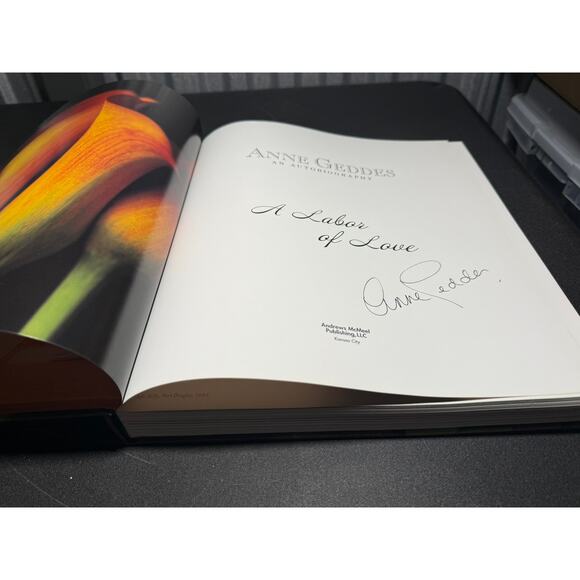 ANNE GEDDES
AN AUTOBIOGRAPHY
A Labor
of Love
Anne Geddes.
Andrews McMeel
Publishing, LLC
Kansas City
Port Douglas, 1995